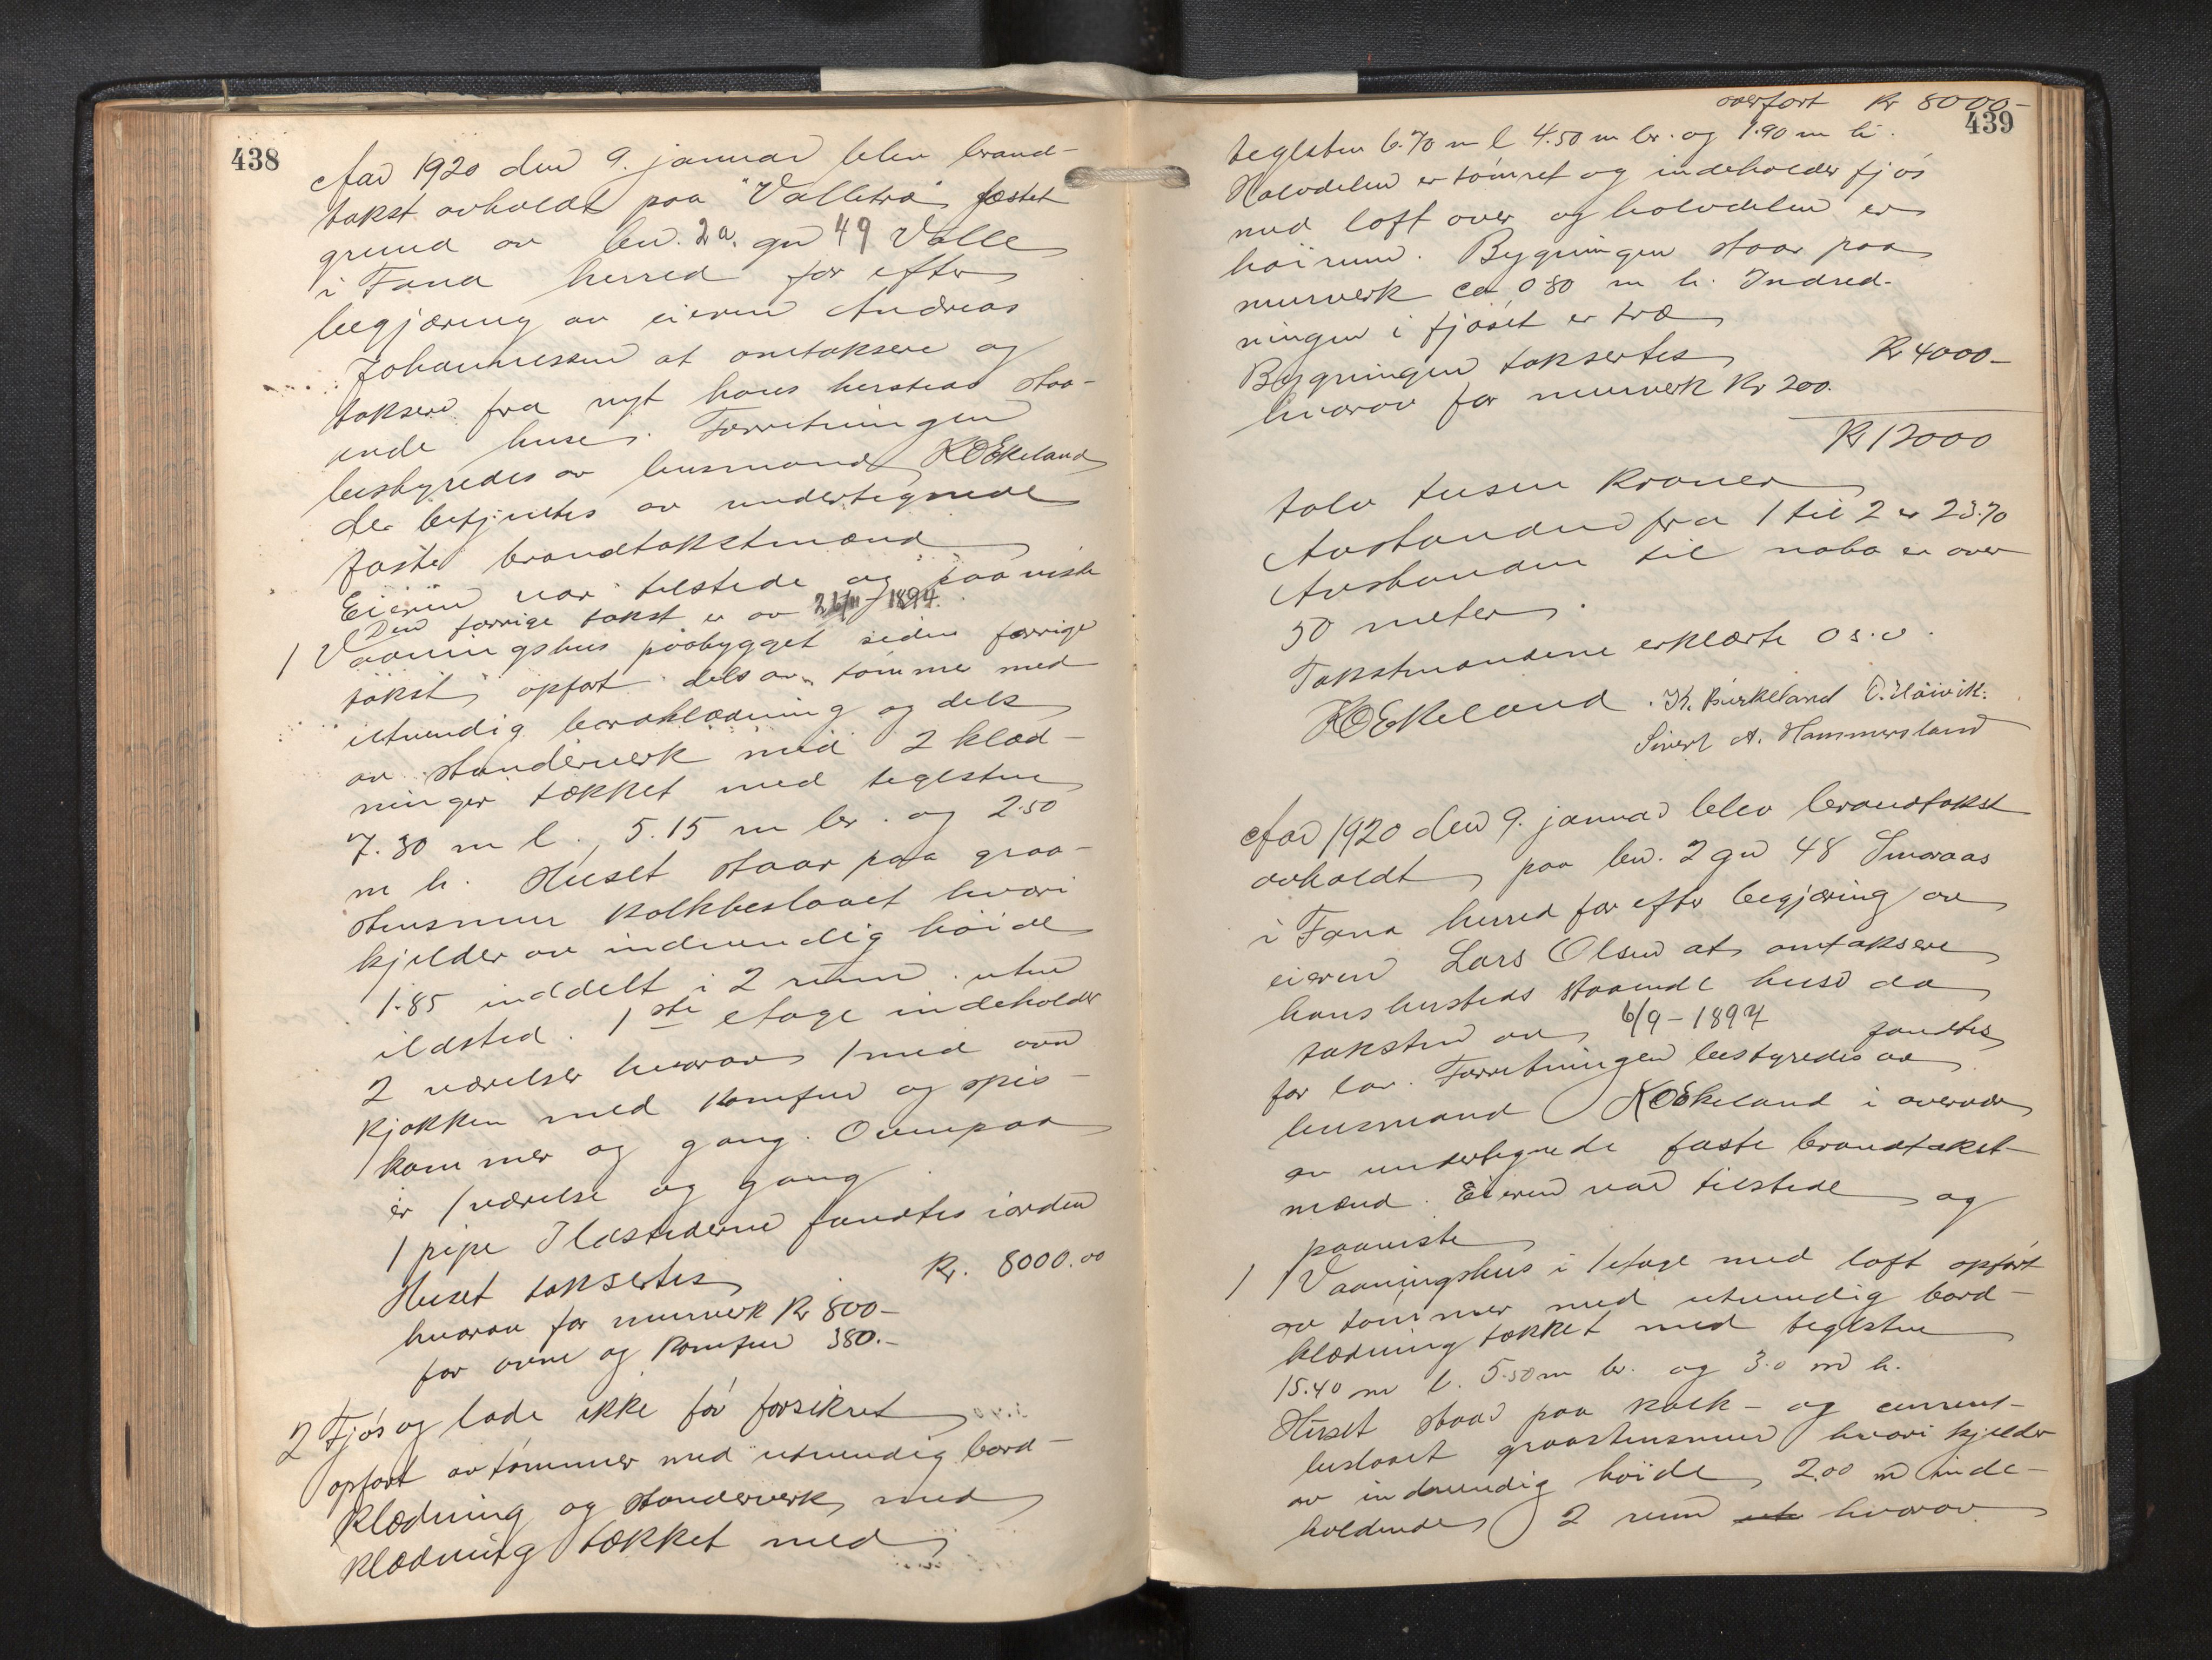 438
Aar 1920 den 9. januar blev brand-
takst avholdt paa "Valletræ" fæstet
grund av bn. 2a. gn 49 Valle
i Fana herred for efter
begjæring av eieren Andreas
Johannessen at omtaksere og
taksere fra nyt hans hersteds staa-
ende huse. Forretningen
bestyredes av lensmand K O Ekeland
der betjentes av undertegnede
faste brandtakstmænd
Eieren var tilstede og paaviste
Den forrige takst er av 26/11 - 1894.
1 Vaaningshus paabygget siden forrige
takst, opført dels av tømmer med
utvendig bordklædning og dels
av standerverk med 2 klæd-
ninger tækket med teglsten
7.30 m l., 5.15 m br. og 2.50
m h. Huset staar paa graa-
stensmur kalkbeslaaet hvori
kjelder av indvendig høide
1.85 inddelt i 2 rum uten
ildsted. 1ste etage indeholder
2 værelser hvorav 1 med ovn
kjøkken med komfur og spis-
kammer og gang. Ovenpaa
er 1 værelse og gang
1 pipe Ildstederne fandtes iorden
Huset taksertes Kr. 8000.00
hvorav for murverk Kr 800-
for ovne og komfur 380.-
2 Fjøs og lade ikke før forsikret
opført av tømmer med utvendig bord-
klædning og standerverk med
klædning tækket med
overført Kr 8000-
439
teglsten 6.70 m l 4.50 m br. og 1.90 m h.
Halvdelen er tømret og indeholder fjøs
med loft over og halvdelen er
høirum. Bygningen staar paa
murverk ca 0.80 m h. Indred-
ningen i fjøset er træ
Bygningen taksertes Kr 4000-
hvorav for murverk Kr 200.
Kr 12000
tolv tusen kroner
Avstanden fra 1 til 2 er 23.70
Avstanden til nabo er over
50 meter.
Takstmændene erklærte o s. v.
K O Ekeland. K. Birkeland O. Høivik.
Sivert A. Hammersland
Aar 1920 den 9. januar blev brandtakst
avholdt paa bn. 2 gn 48 Smøraas
i Fana herred for efter begjæring av
eieren Lars Olsen at omtaksere
hans hersteds staaende huse da
taksten av 6/9 - 1897 fandtes
for lav. Forretningen bestyredes av
lensmand K O Ekeland i overvær
av undertegnede faste brandtakst-
mænd. Eieren var tilstede og
paaviste
1 1 Vaaningshus i 1 etage med loft opført
av tømmer med utvendig bord-
klædning tækket med teglsten
15.40 m l. 5.50 m br. og 3.0 m h.
Huset staar paa kalk- og cement-
beslaaet graastensmur hvori kjelder
av indvendig høide 2.00 m inde-
holdende 2 rum hvorav